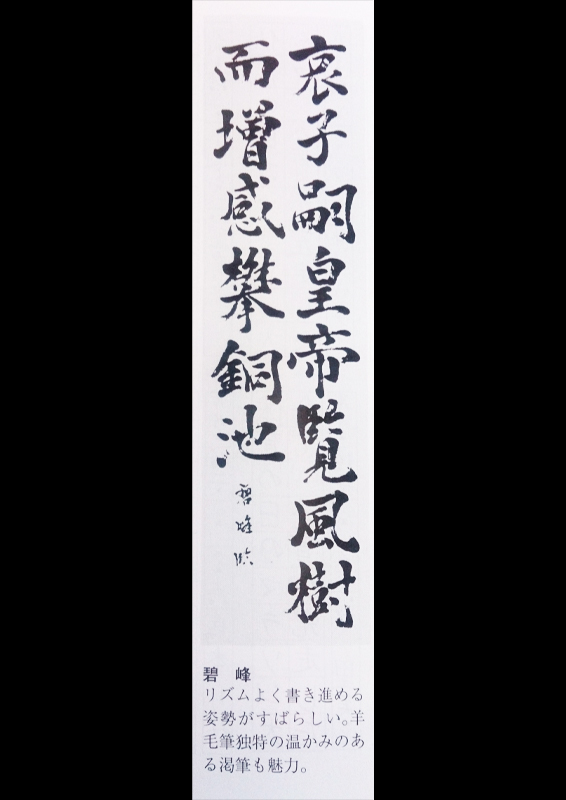 哀子嗣皇帝覽風樹
而增感攀銅池
碧峰臨
碧 峰
リズムよく書き進める
姿勢がすばらしい。羊
毛筆独特の温かみのあ
る渇筆も魅力。